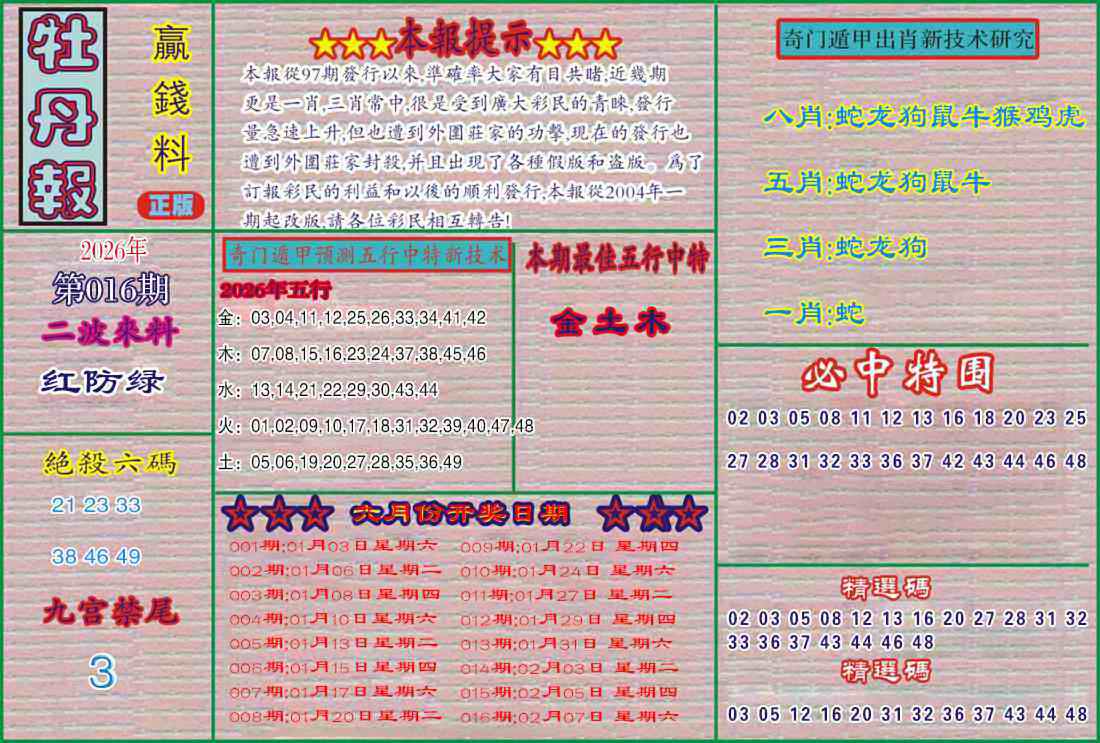 牡丹報
贏錢料
正版
2026年
第016期
二波來料
红防绿
絕殺六碼
21 23 33
38 46 49
九宫禁尾
3
★★★本報提示★★★
本報從97期發行以來,準確率大家有目共睹,近幾期
更是一肖,三肖常中,很是受到廣大彩民的青睞,發行
量急速上升,但也遭到外圍莊家的功擊,現在的發行也
遭到外圍莊家封殺,并且出現了各種假版和盗版。爲了
訂報彩民的利益和以後的順利發行,本報從2004年一
期起改版,請各位彩民相互轉告!
奇门遁甲预测五行中特新技术
2026年五行
金：03,04,11,12,25,26,33,34,41,42
木：07,08,15,16,23,24,37,38,45,46
水：13,14,21,22,29,30,43,44
火：01,02,09,10,17,18,31,32,39,40,47,48
土：05,06,19,20,27,28,35,36,49
本期最佳五行中特
金土木
☆☆☆ 六月份开奖日期 ☆☆☆
001期:01月03日星期六
002期:01月06日星期二
003期:01月08日星期四
004期:01月10日星期六
005期:01月13日星期二
006期:01月15日星期四
007期:01月17日星期六
008期:01月20日星期二
009期:01月22日 星期四
010期:01月24日 星期六
011期:01月27日 星期二
012期:01月29日 星期四
013期:01月31日 星期六
014期:02月03日 星期二
015期:02月05日 星期四
016期:02月07日 星期六
奇门遁甲出肖新技术研究
八肖:蛇龙狗鼠牛猴鸡虎
五肖:蛇龙狗鼠牛
三肖:蛇龙狗
一肖:蛇
必中特围
02 03 05 08 11 12 13 16 18 20 23 25
27 28 31 32 33 36 37 42 43 44 46 48
精選碼
02 03 05 08 12 13 16 20 27 28 31 32
33 36 37 43 44 46 48
精選碼
03 05 12 16 20 31 32 36 37 43 44 48